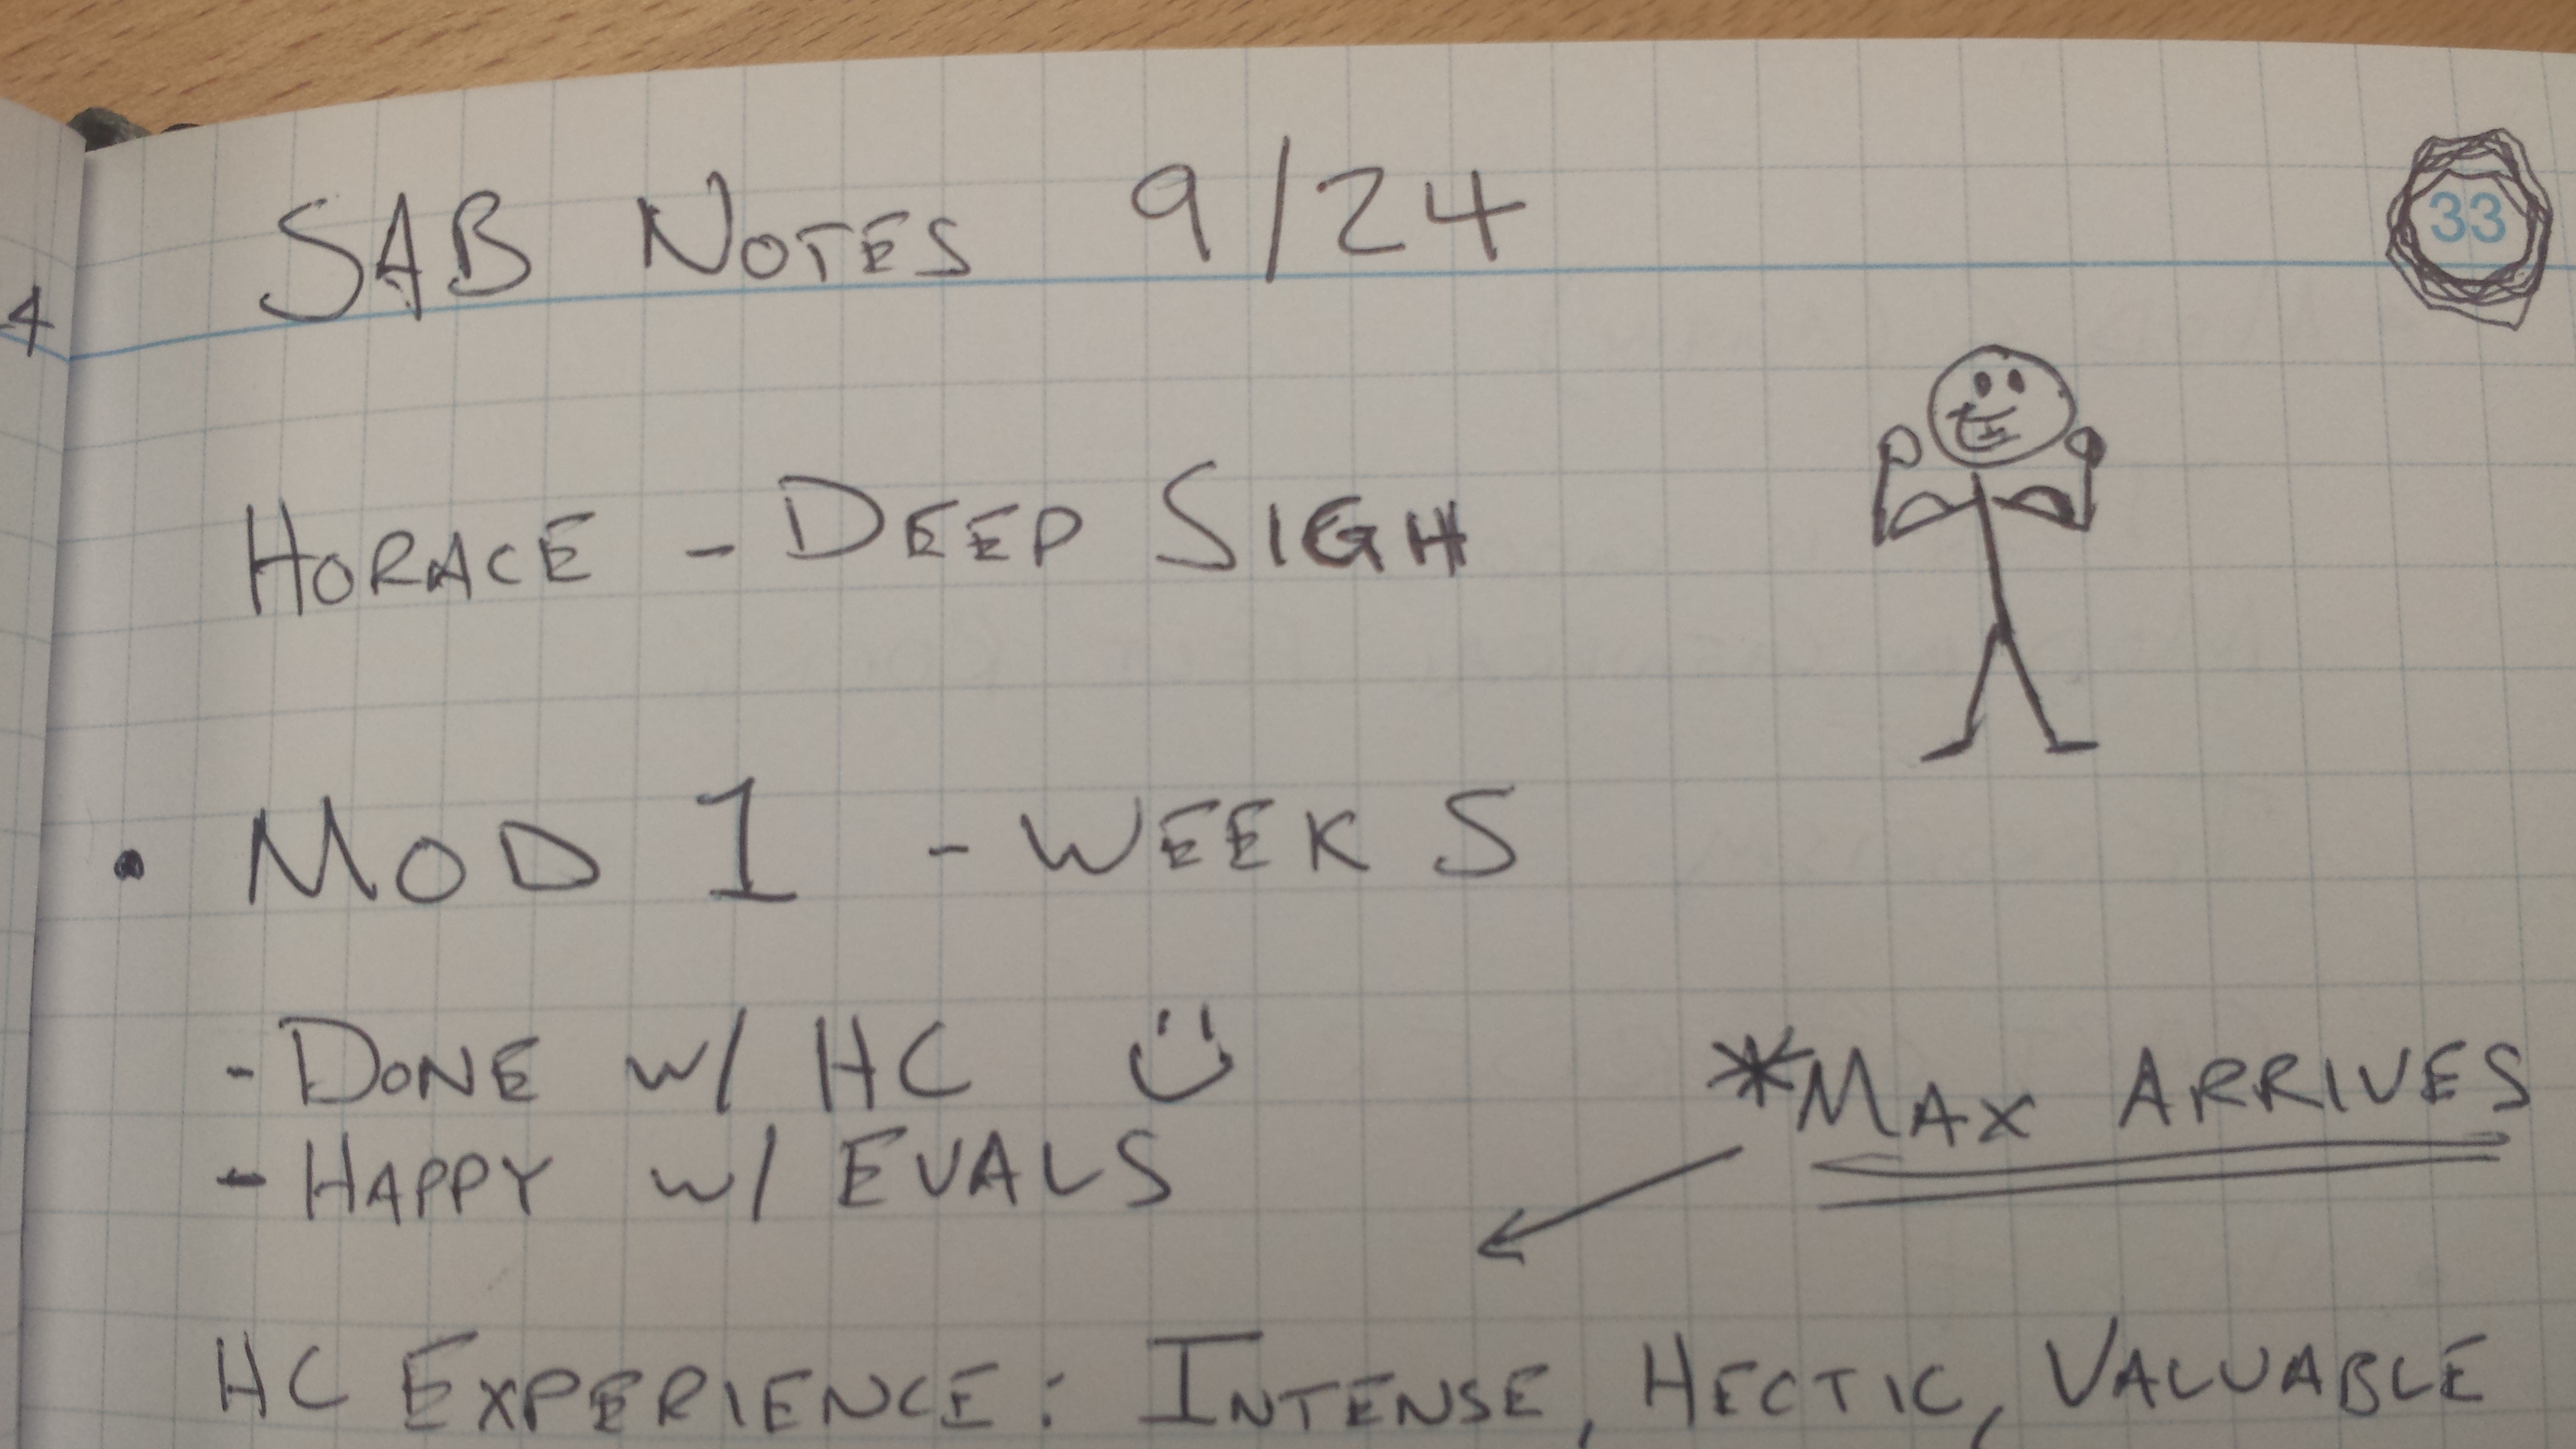 SAB NOTES 9/24
33
4
HORACE - DEEP SIGH
• MOD 1 - WEEK 5
- DONE W/ HC
- HAPPY W/ EVALS
*MAX ARRIVES
HC EXPERIENCE: INTENSE, HECTIC, VALUABLE